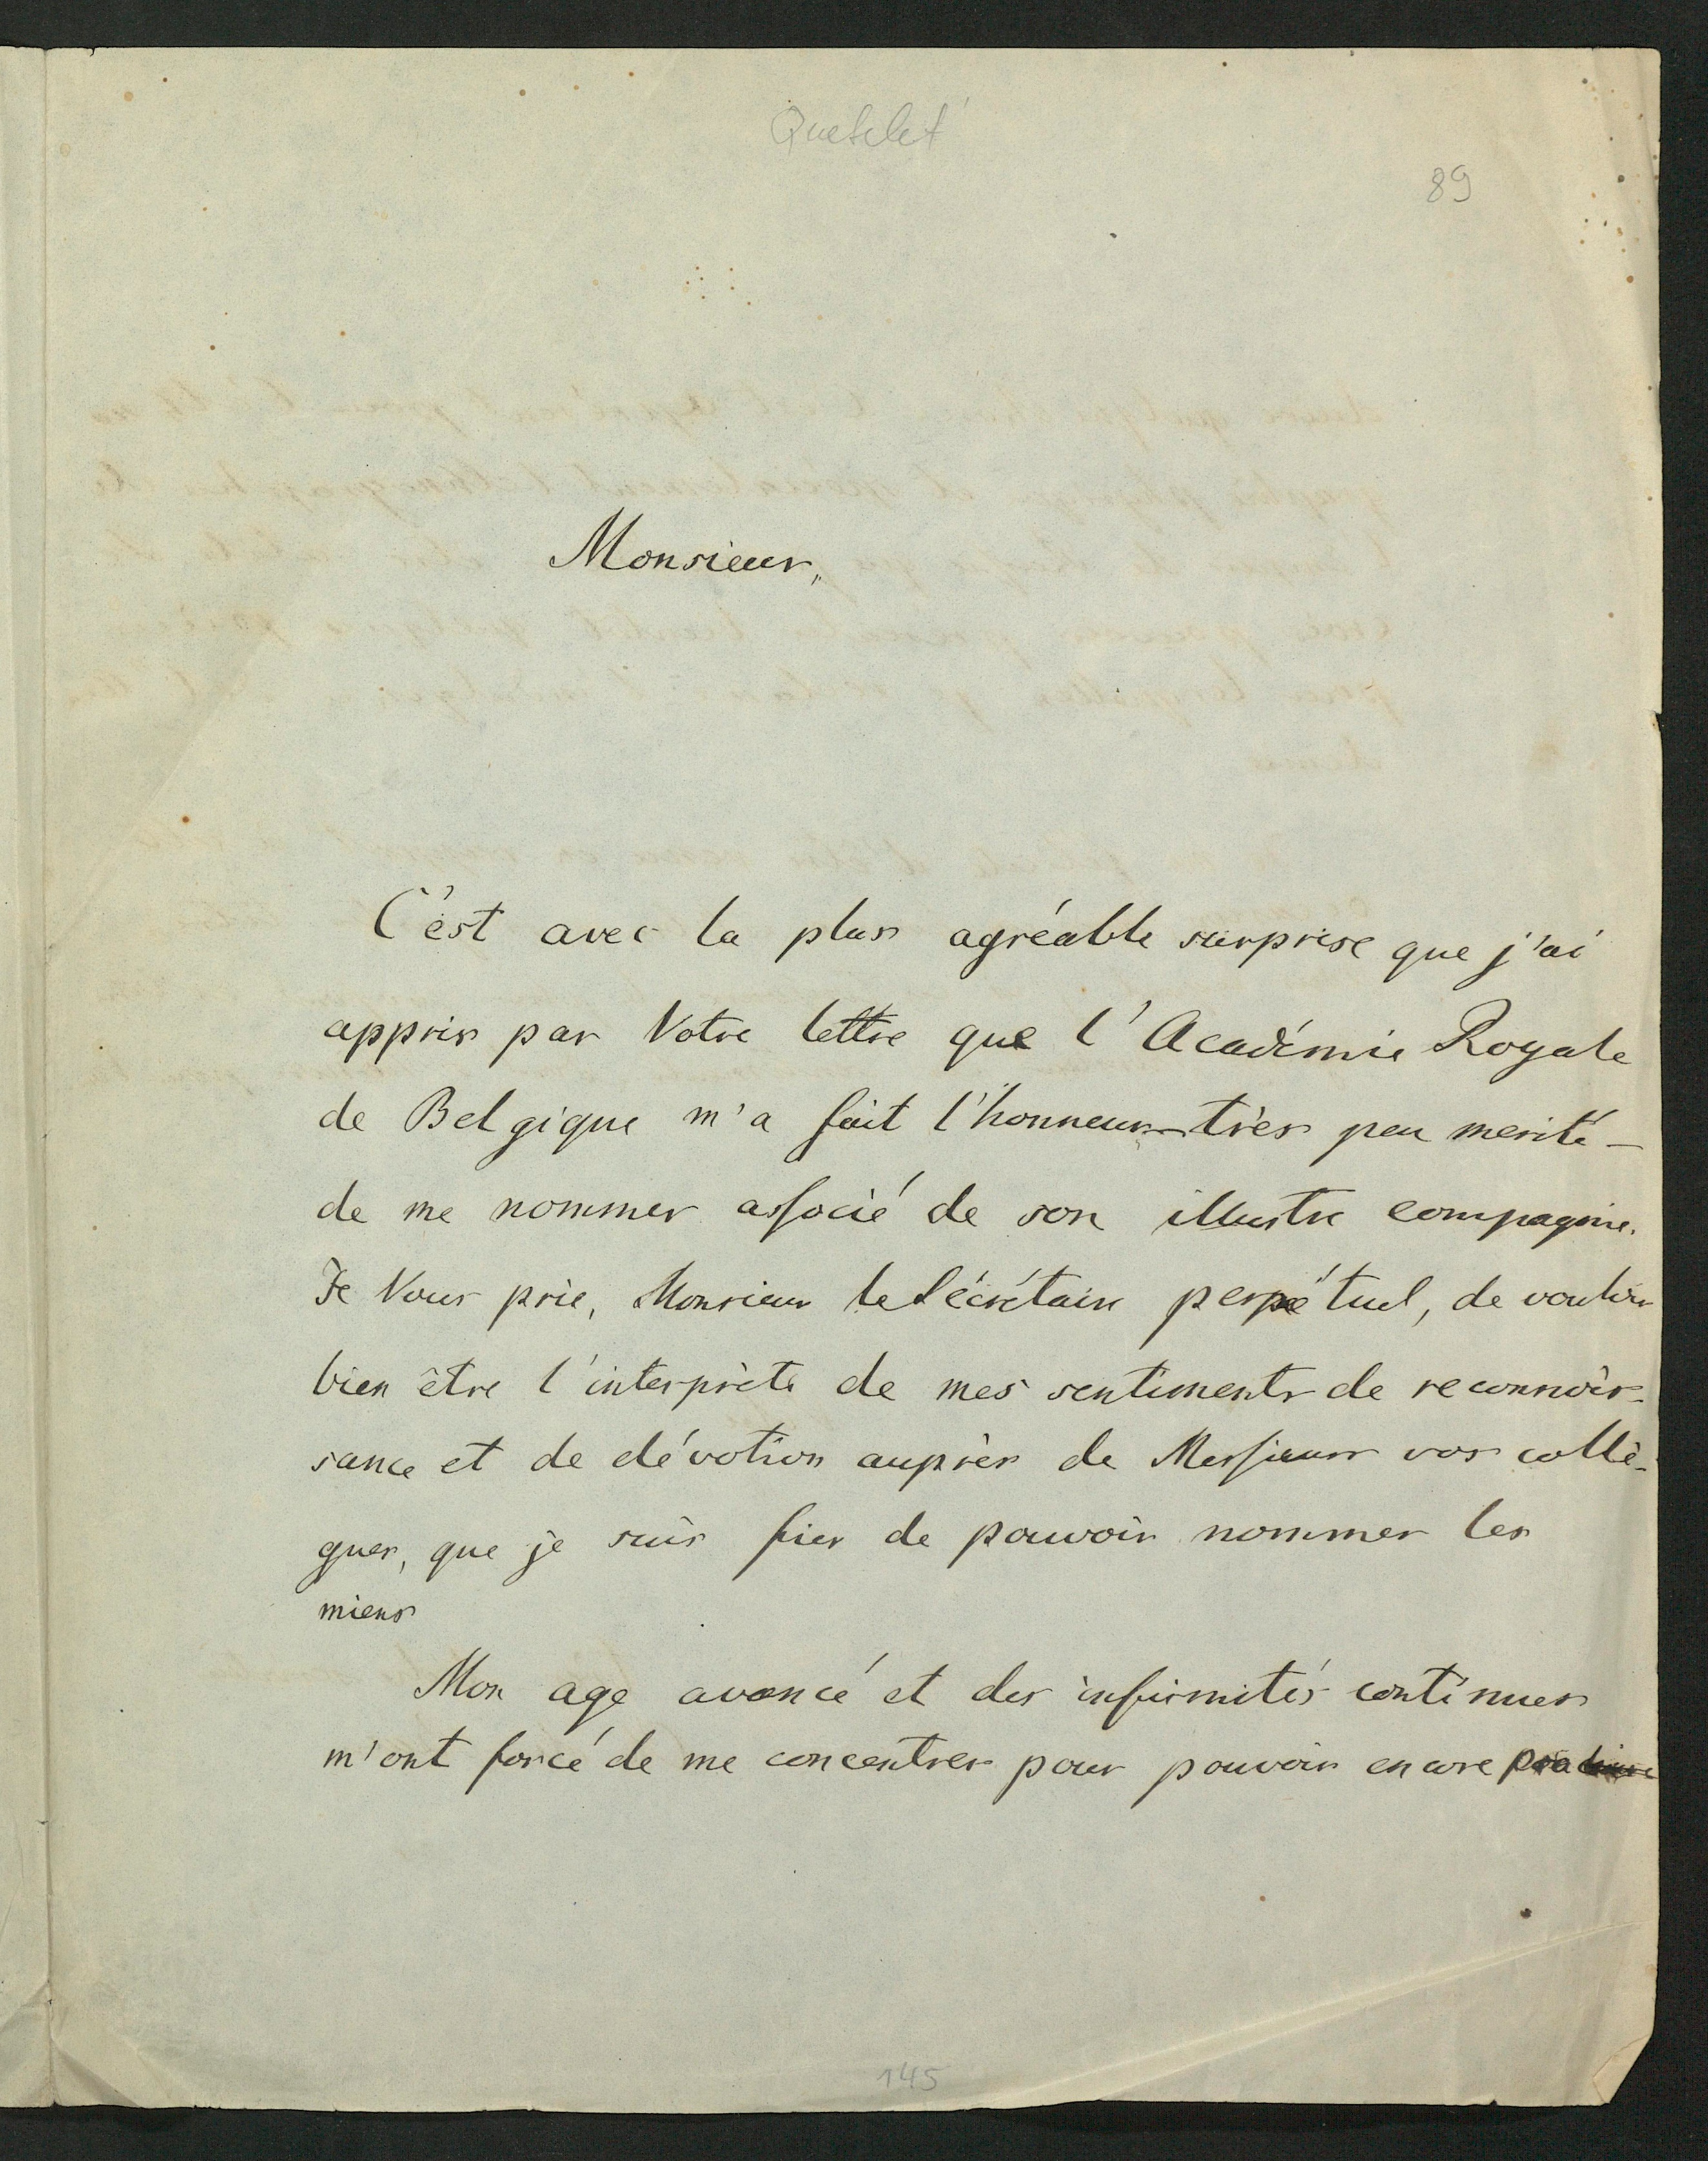 Quetelet
89
Monsieur,
C'ést avec la plus agréable surprise que j'ai
appris par Votre lettre que l'Académie Royale
de Belgique m'a fait l'honneur – très peu merité –
de me nommer associé de son illustre compagnie.
Je Vous prie, Monsieur le Sécrétaire perpétuel, de vouloir
bien être l'interprète de mes sentiments de reconnois-
sance et de dévotion auprès de Messieurs vos collè-
gues, que je suis fier de pouvoir nommer les
miens
Mon age avancé et des infirmités continues
m'ont forcé de me concentrer pour pouvoir encore
145